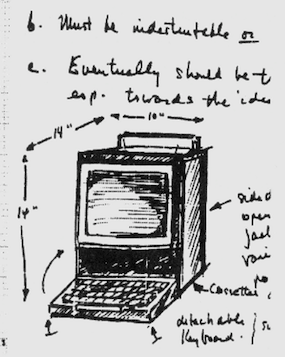 b. Must be indestructable or
c. Eventually should be t
esp. towards the idea
14"
10"
14"
sided
open
Cassettes
detachable
Keyboard.